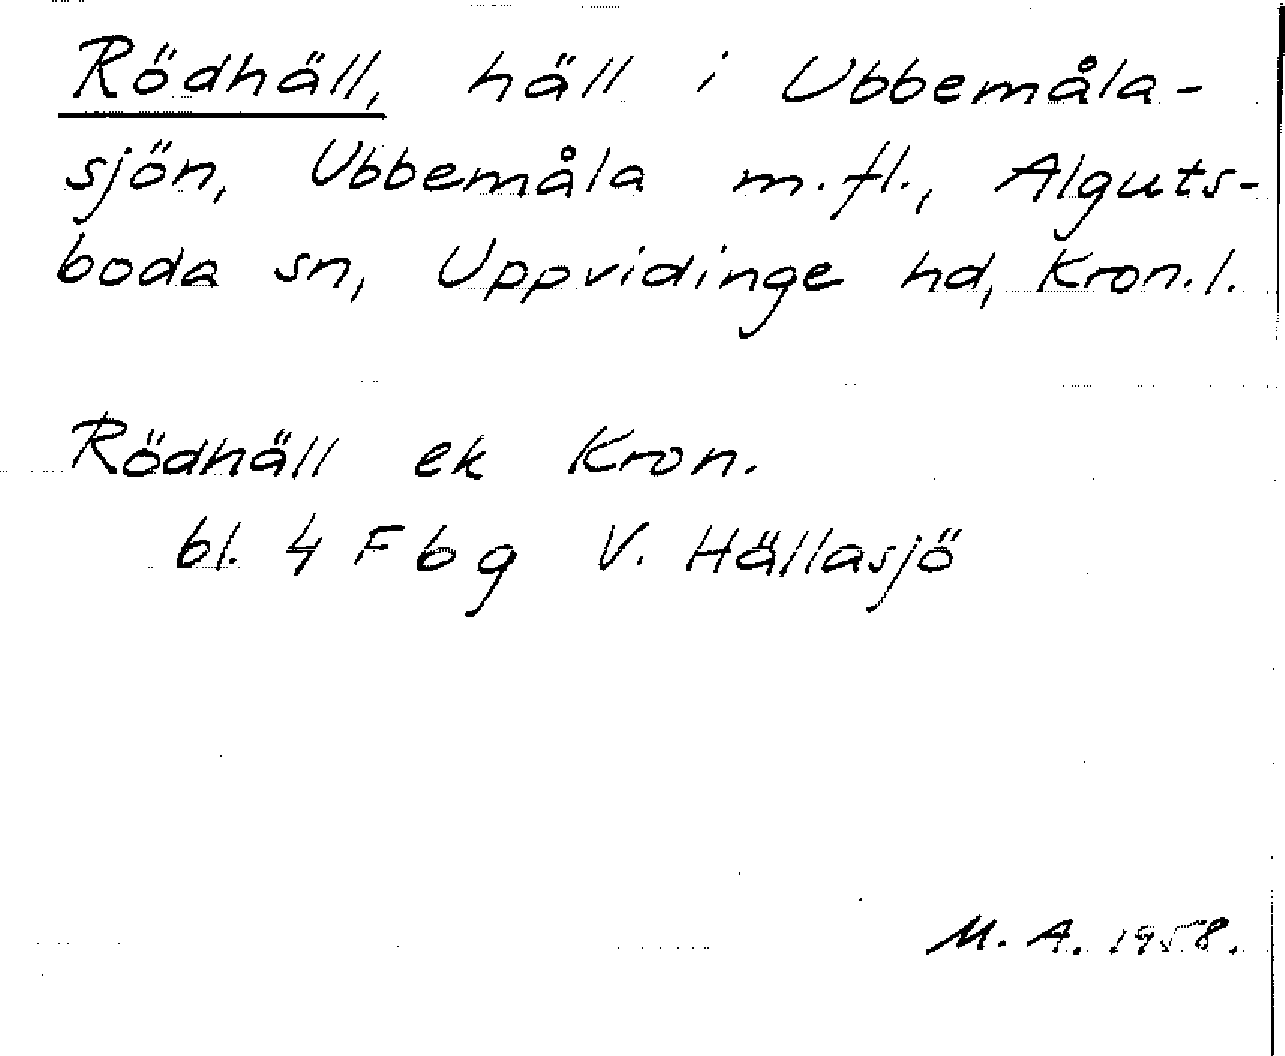 Rödhäll, häll i Ubbemåla-
sjön, Ubbemåla m.fl., Alguts-
boda sn, Uppvidinge hd, Kron.l.
Rödhäll ek Kron.
bl. 4 F b g V. Hällasjö
M. A. 1958.